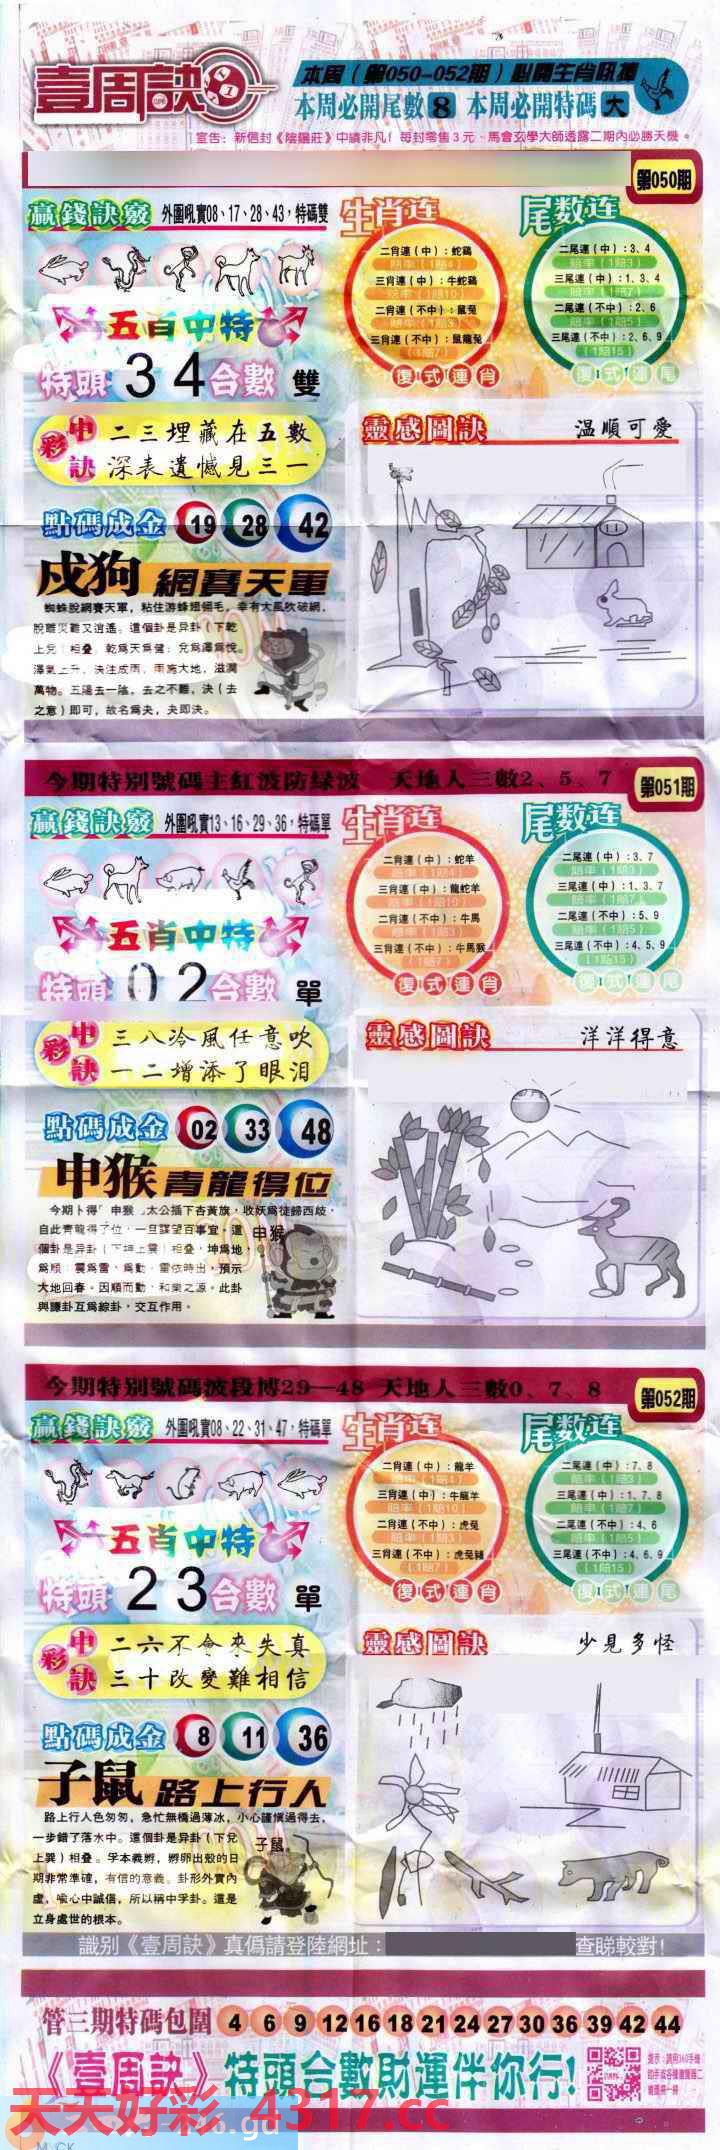 壹周訣
本周（第050-052期）必開生肖訊摟
本周必開尾數 8 本周必開特碼 大
宣告：新信封《陰陽莊》中繡非凡！每封零售3元、馬會玄學大師透露二期內必勝天機。
第050期
贏錢訣竅 外圍吼實08、17、28、43，特碼雙
五肖中特
特頭 34 合數 雙
中彩訣
二三埋藏在五數
深表遺憾見三一
點碼成金 19 28 42
戍狗 網賽天軍
蜘蛛脫網賽天軍，粘住游蜂翅傾毛，幸有大風吹破網，
脫離災難又逍遙。這個卦是异卦（下乾
上兌）相疊，乾為天為健；兌為澤為悅。
澤氣上升，決注成雨，雨施大地，滋潤
萬物。五陽去一陰，去之不難，決（去
之意）即可，故名為夬，夬即決。
生肖连
二肖連（中）：蛇鷄
賠率（1賠4）
三肖連（中）：牛蛇鷄
賠率（1賠10）
二肖連（不中）：鼠兔
賠率（1賠3）
三肖連（不中）：鼠龍兔
（1賠7）
復式連肖
尾数连
二尾連（中）：3、4
賠率（1賠3）
三尾連（中）：1、3、4
賠率（1賠7）
二尾連（不中）：2、6
賠率（1賠5）
三尾連（不中）：2、6、9
（1賠15）
復式連尾
靈感圖訣 温順可愛
今期特别號碼主紅波防绿波 天地人三數2、5、7
第051期
贏錢訣竅 外圍吼實13、16、29、36，特碼單
五肖中特
特頭 02 合數 單
中彩訣
三八冷風任意吹
一二增添了眼泪
點碼成金 02 33 48
申猴 青龍得位
今期卜得 申猴 太公插下杏黃旗，收妖為徒歸西岐，
自此青龍得了位，一旦謀望百事宜。這
個卦是异卦（下坤上震）相疊，坤為地、
為順；震為雷、為動。雷依時出，預示
大地回春。因順而動，和樂之源。此卦
與謙卦互為綜卦，交互作用。
申猴
生肖连
二肖連（中）：蛇羊
賠率（1賠4）
三肖連（中）：龍蛇羊
賠率（1賠10）
二肖連（不中）：牛馬
賠率（1賠3）
三肖連（不中）：牛馬猴
（1賠7）
復式連肖
尾数连
二尾連（中）：3、7
賠率（1賠3）
三尾連（中）：1、3、7
賠率（1賠7）
二尾連（不中）：5、9
賠率（1賠5）
三尾連（不中）：4、5、9
（1賠15）
復式連尾
靈感圖訣 洋洋得意
今期特别號碼波段博29—48 天地人三數0、7、8
第052期
贏錢訣竅 外圍吼實08、22、31、47，特碼單
五肖中特
特頭 23 合數 單
中彩訣
二六不會來失真
三十改變難相信
點碼成金 8 11 36
子鼠 路上行人
路上行人色匆匆，急忙無橋過薄冰，小心謹慎過得去，
一步錯了落水中。這個卦是异卦（下兌
上巽）相疊。孚本義孵，孵卵出殼的日
期非常準確，有信的意義。卦形外實內
虛，喻心中誠信，所以稱中孚卦。這是
立身處世的根本。
子鼠
生肖连
二肖連（中）：龍羊
賠率（1賠4）
三肖連（中）：牛龍羊
賠率（1賠10）
二肖連（不中）：虎兔
賠率（1賠3）
三肖連（不中）：虎兔豬
（1賠7）
復式連肖
尾数连
二尾連（中）：7、8
賠率（1賠3）
三尾連（中）：1、7、8
賠率（1賠7）
二尾連（不中）：4、6
賠率（1賠5）
三尾連（不中）：4、6、9
（1賠15）
復式連尾
靈感圖訣 少見多怪
識别《壹周訣》真偽請登陸網址： 查睇較對！
管三期特碼包圍 4 6 9 12 16 18 21 24 27 30 36 39 42 44
《壹周訣》特頭合數財運伴你行！
天天好彩 4317.cc